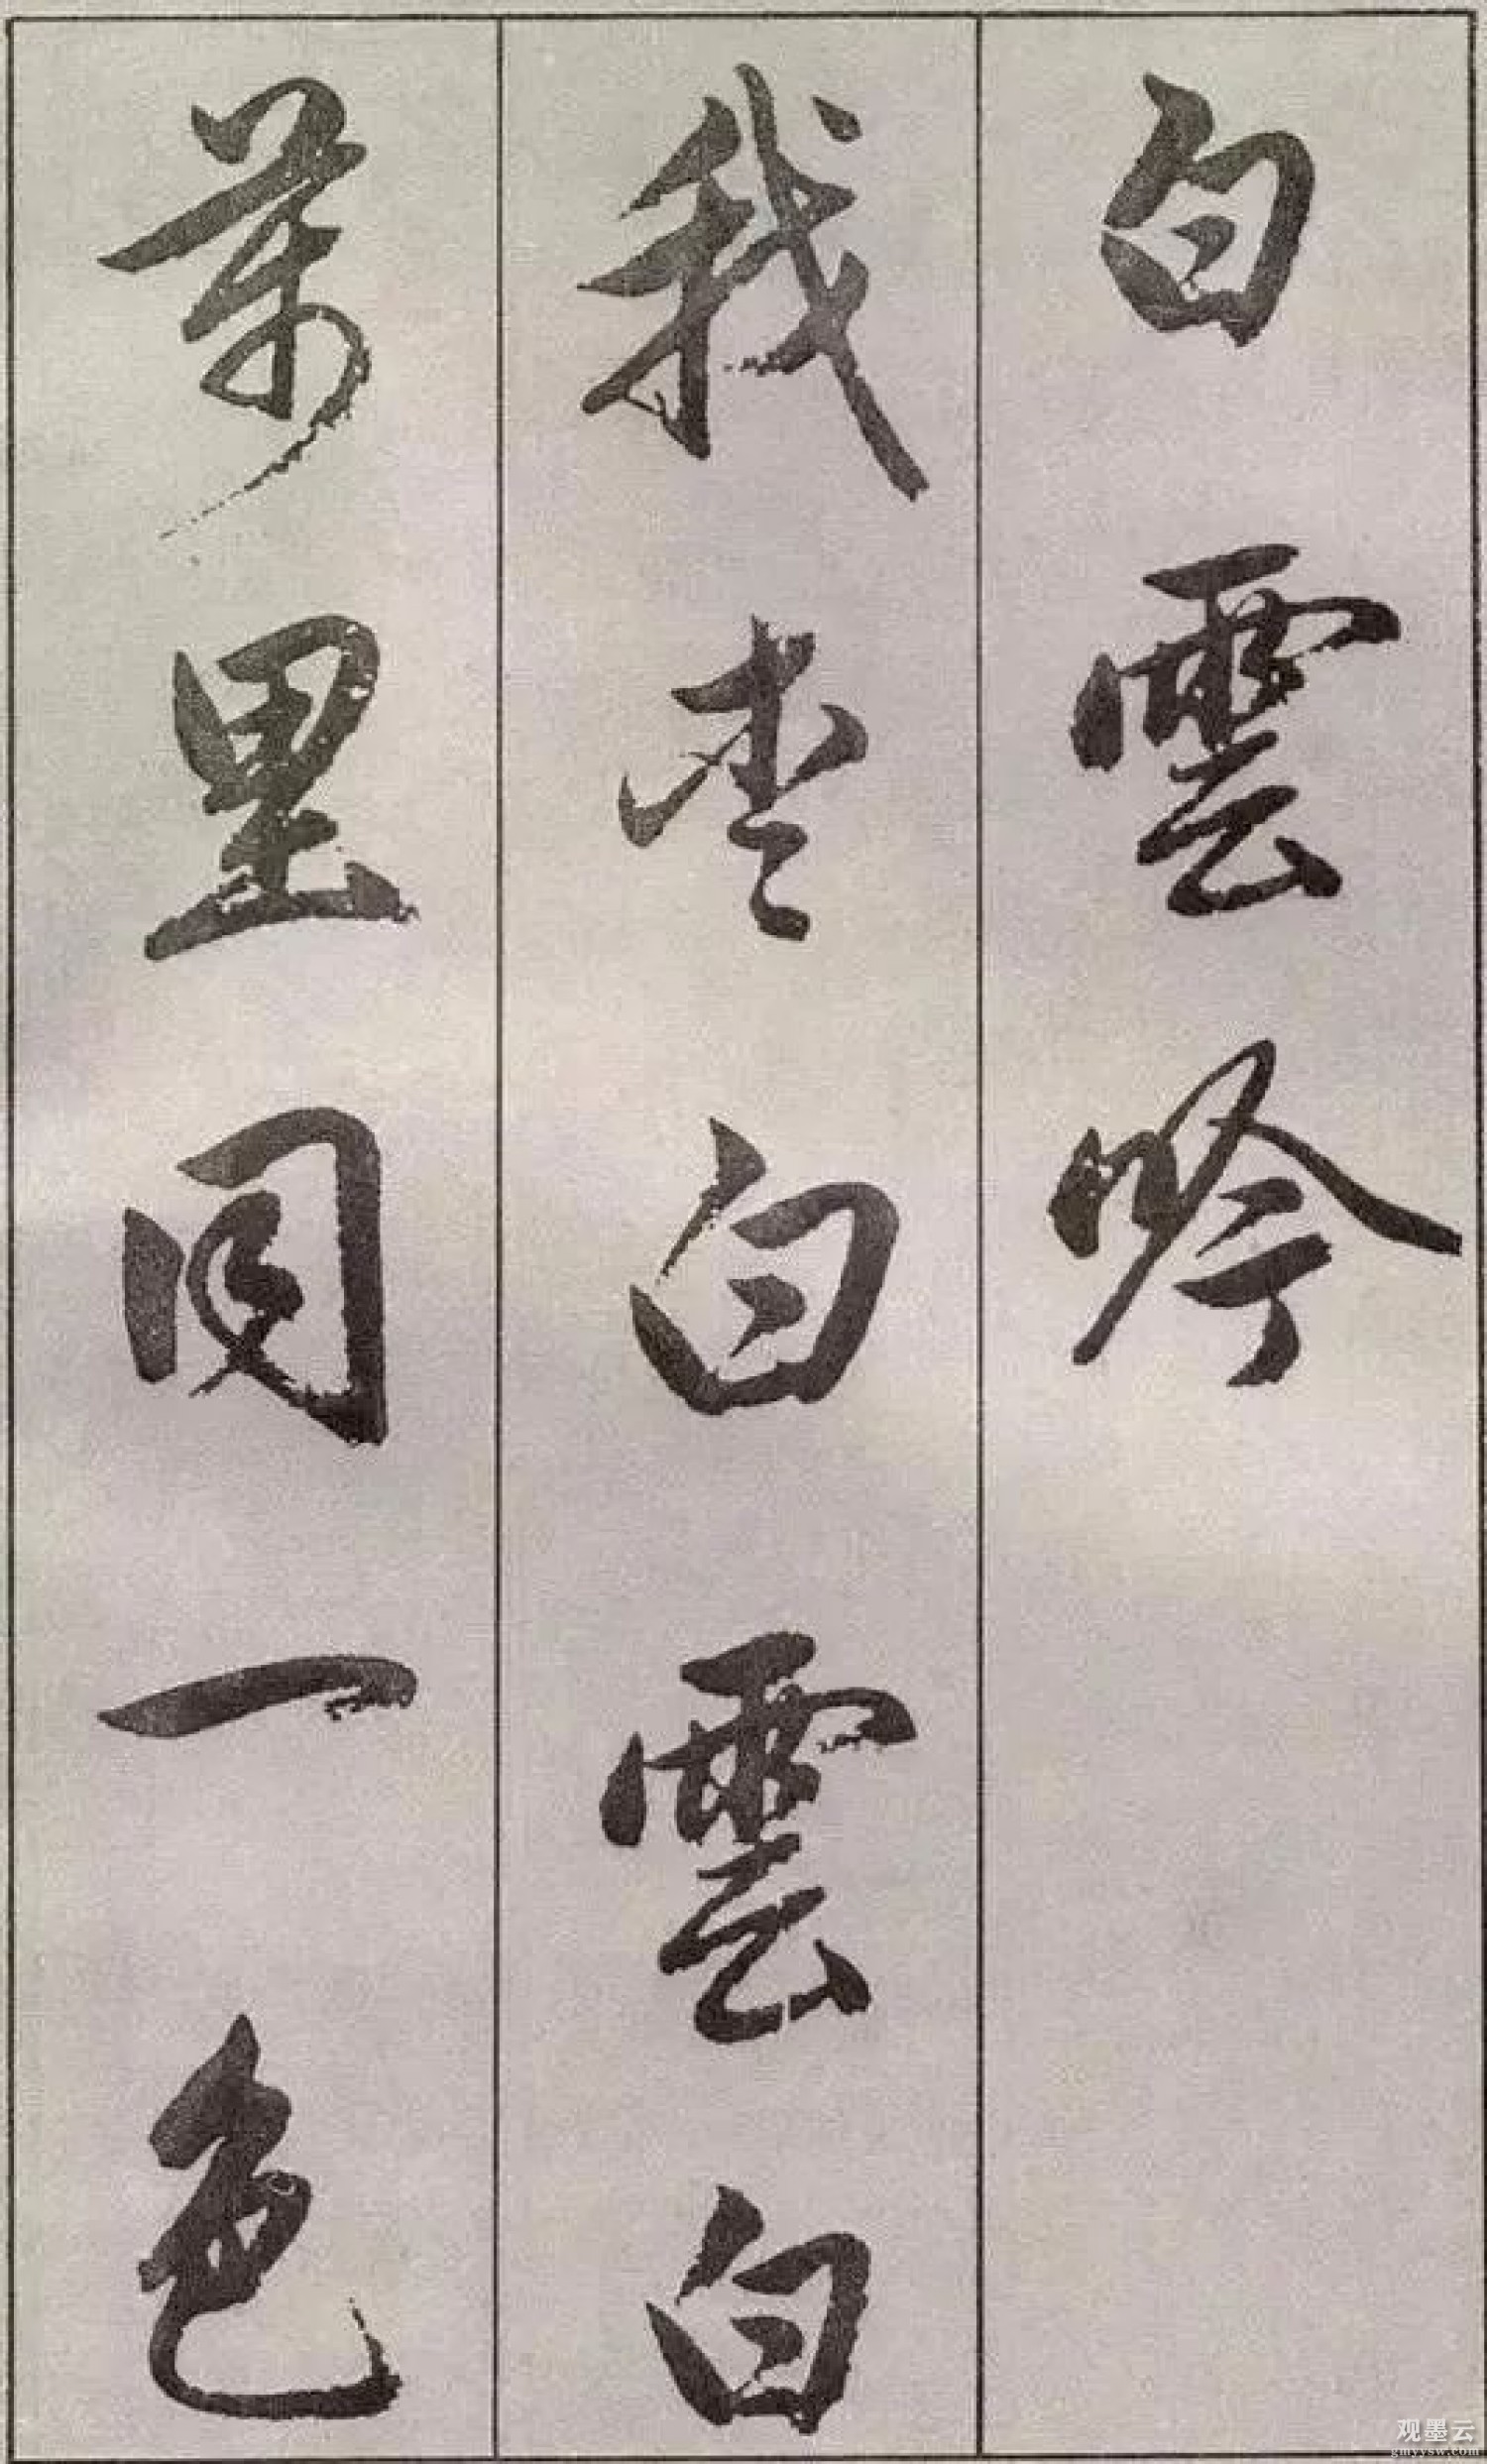 白雲吟
我愛白雲白
萬里同一色
观墨云
gmyysw.com